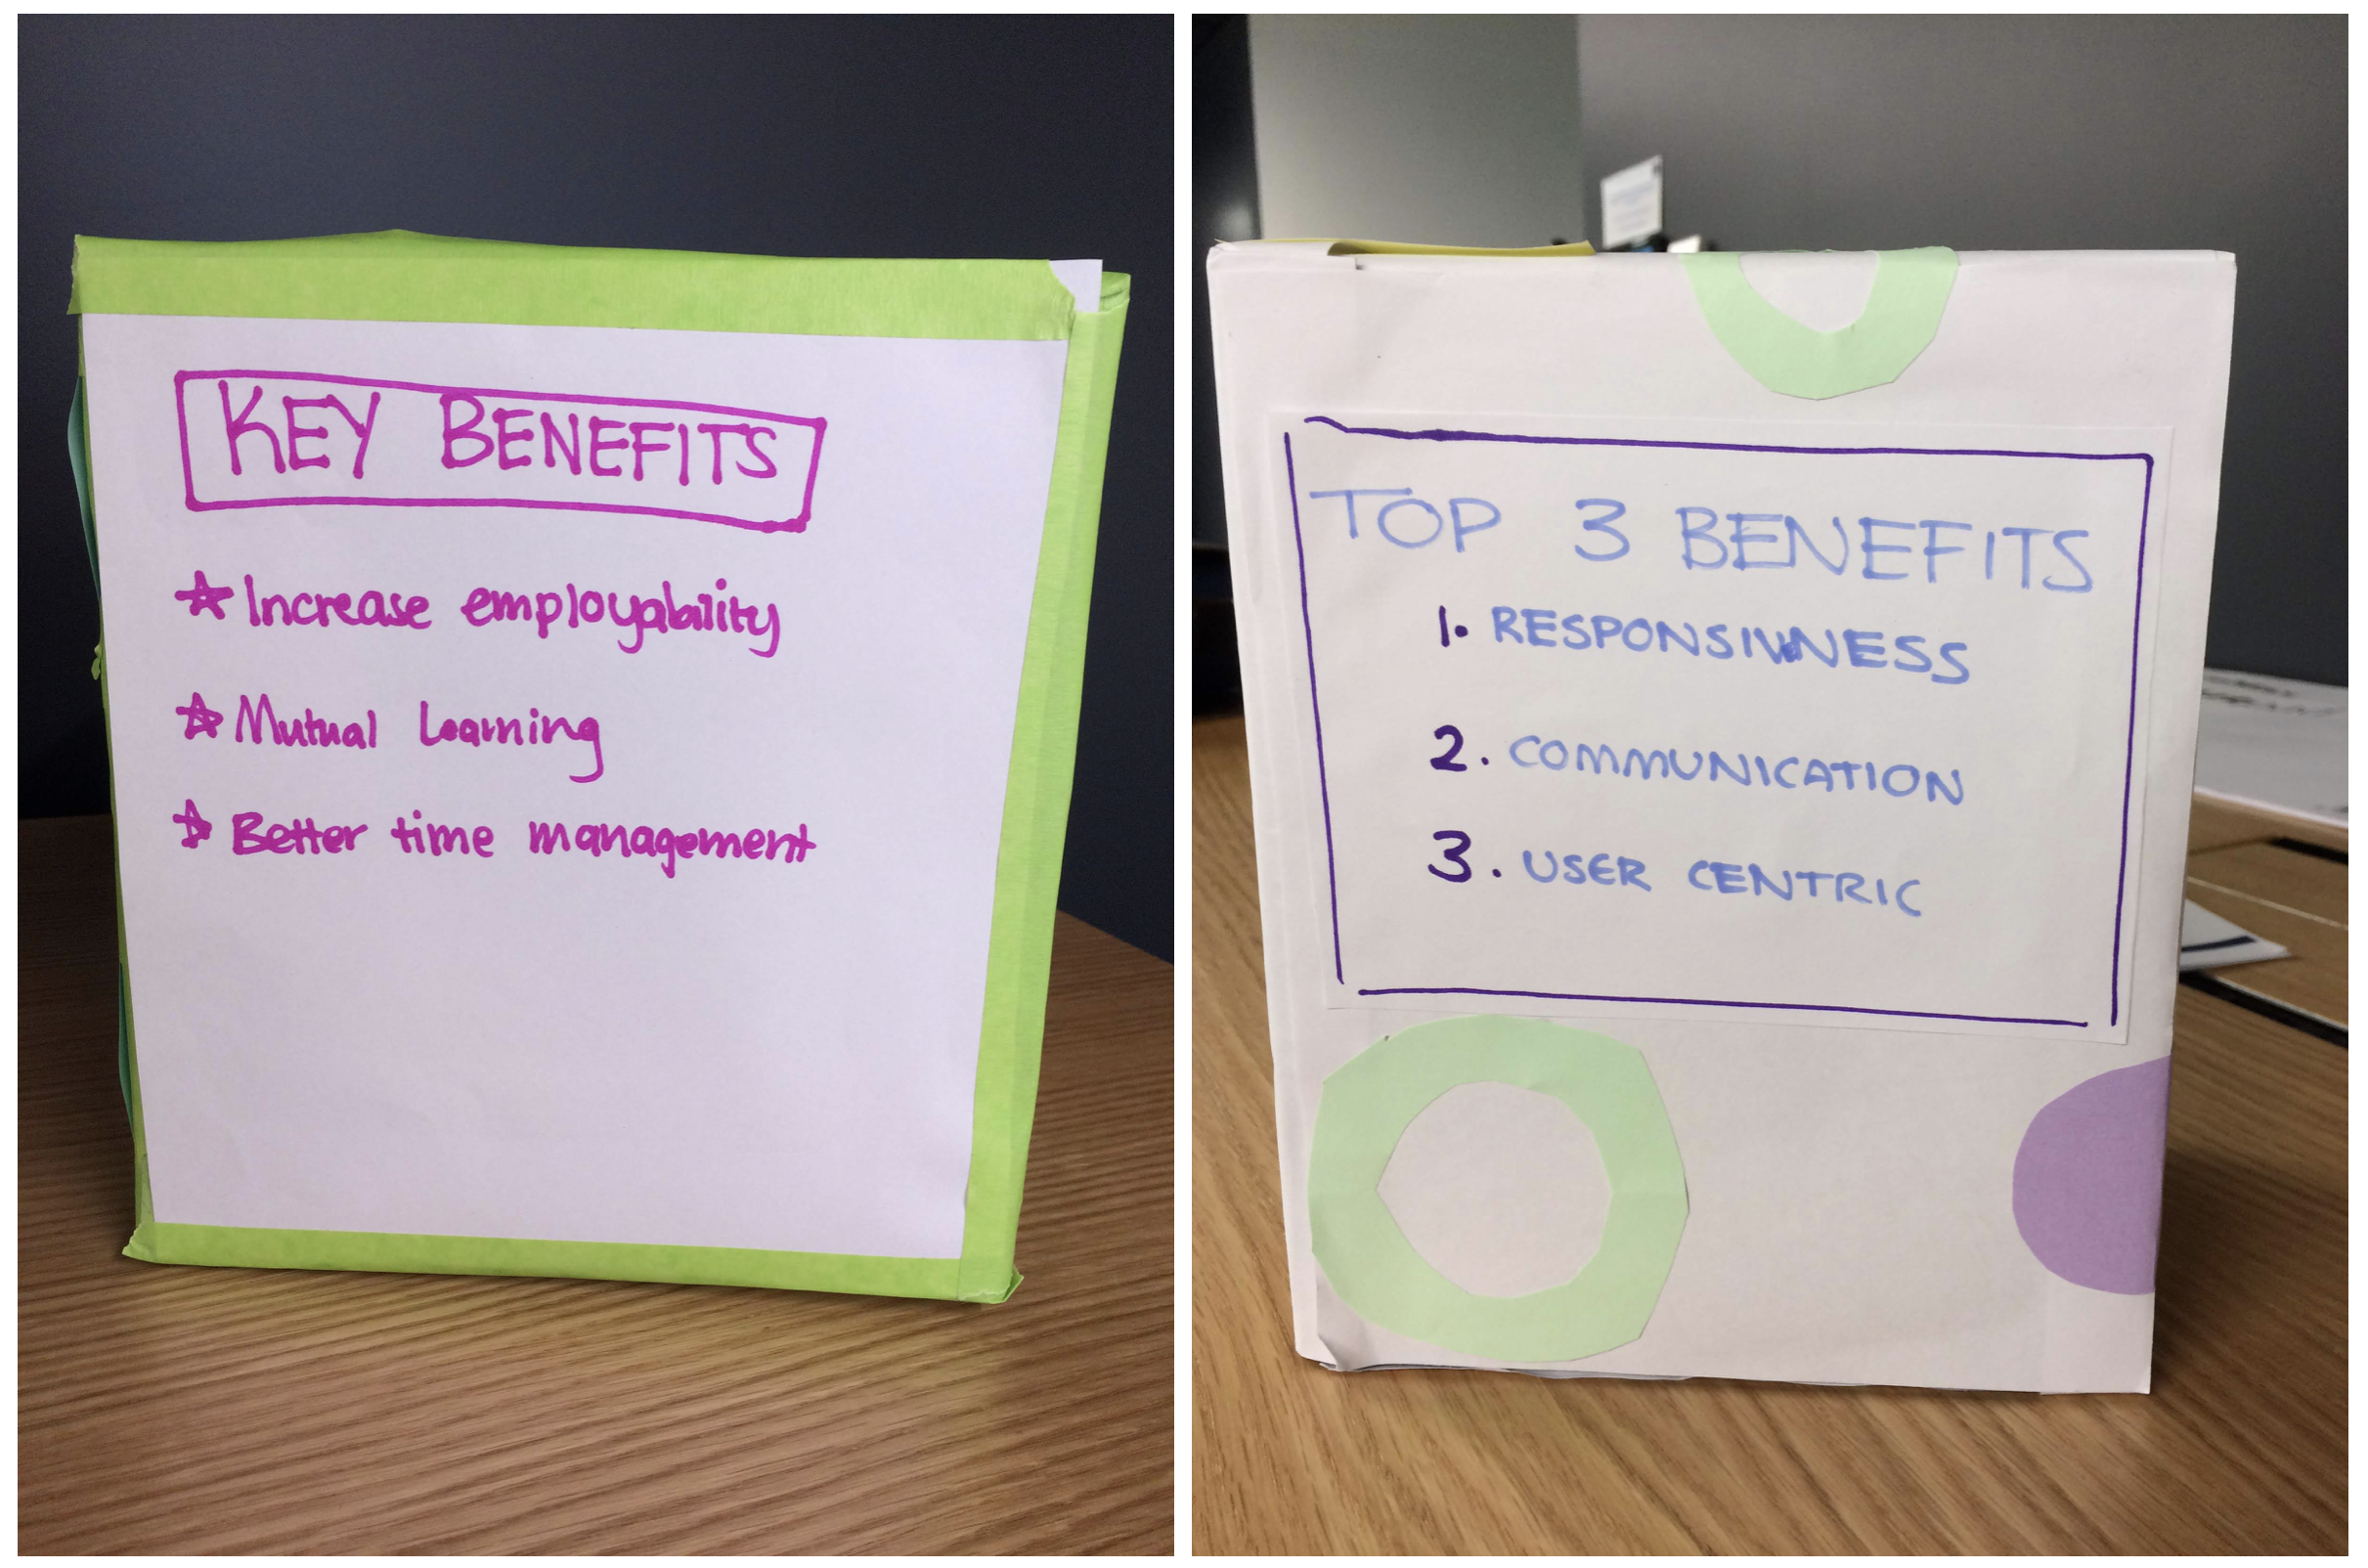 KEY BENEFITS
Increase employability
Mutual Learning
Better time management
TOP 3 BENEFITS
1. RESPONSIVNESS
2. COMMUNICATION
3. USER CENTRIC